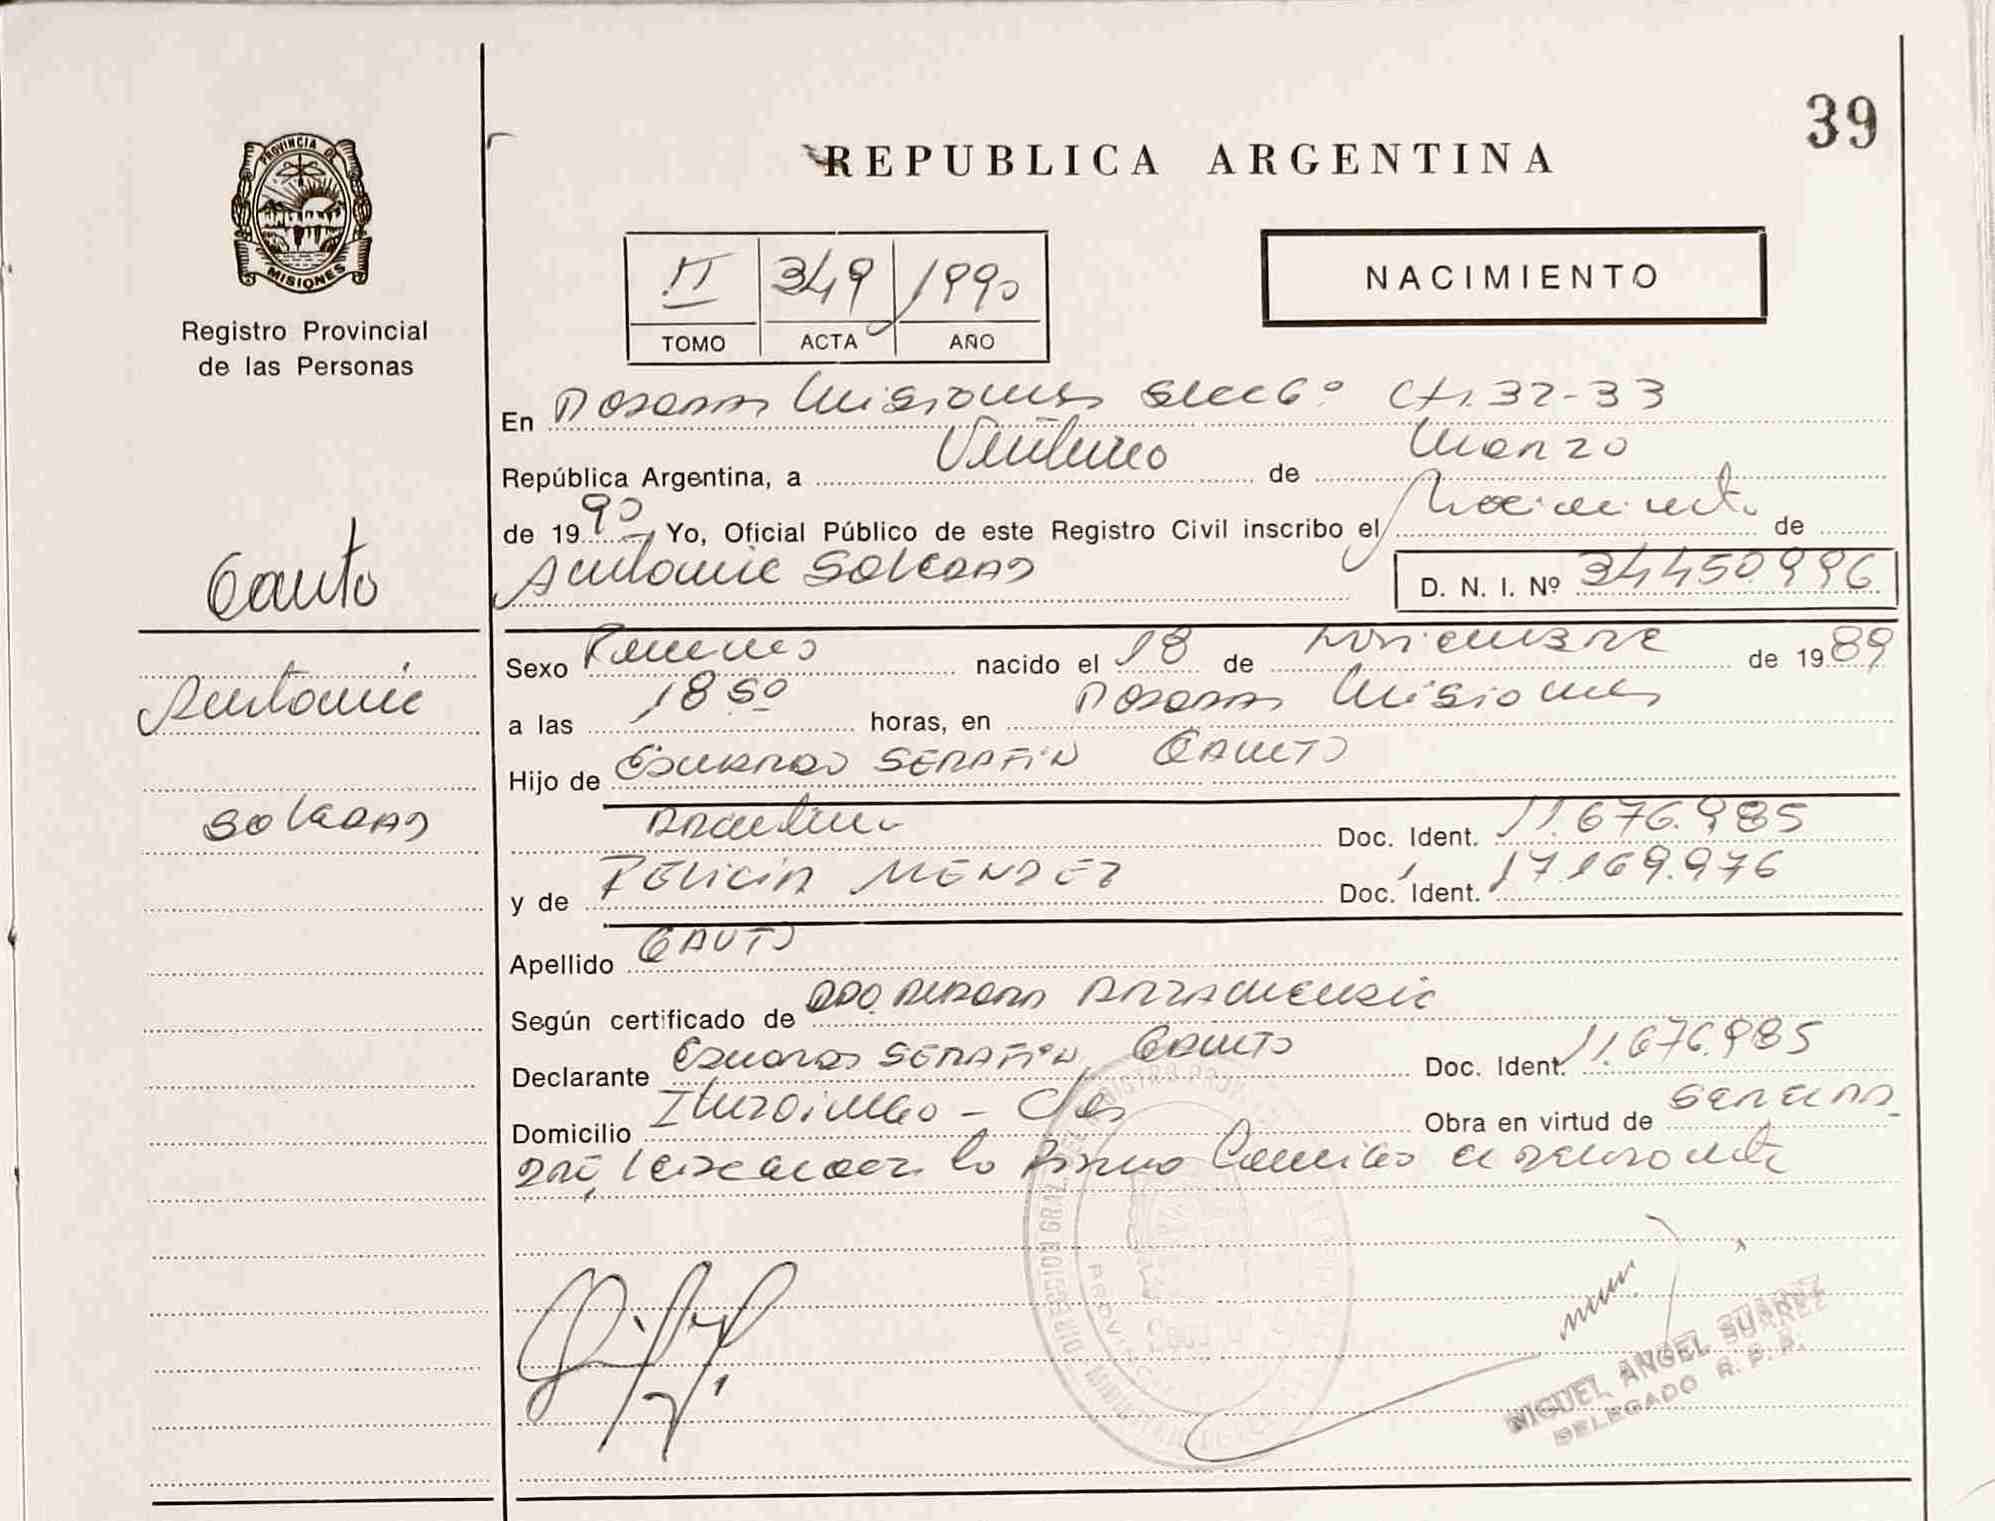 39
REPUBLICA ARGENTINA
PROVINCIA DE
MISIONES
Registro Provincial
de las Personas
II 349 1990
TOMO ACTA AÑO
NACIMIENTO
En Posadas Misiones Secc 6° Ctr. 32-33
República Argentina, a Veintiuno de Marzo
de 1990 Yo, Oficial Público de este Registro Civil inscribo el Nacimiento de
Antonia Soledad D. N. I. Nº 34450.996
Gauto
Antonia
Soledad
Sexo Femenino nacido el 18 de Noviembre de 1989
a las 18 50 horas, en Posadas Misiones
Hijo de Eduardo SERAFIN GAUTO
Argentino Doc. Ident. 11.676.985
y de FELICIA MENDEZ Doc. Ident. 17.169.976
Apellido GAUTO
Según certificado de
Declarante Eduardo SERAFIN GAUTO Doc. Ident. 11.676.985
Domicilio Ituzaingo - Ctes Obra en virtud de
lo
MIGUEL ANGEL SUAREZ
DELEGADO R. P. P.